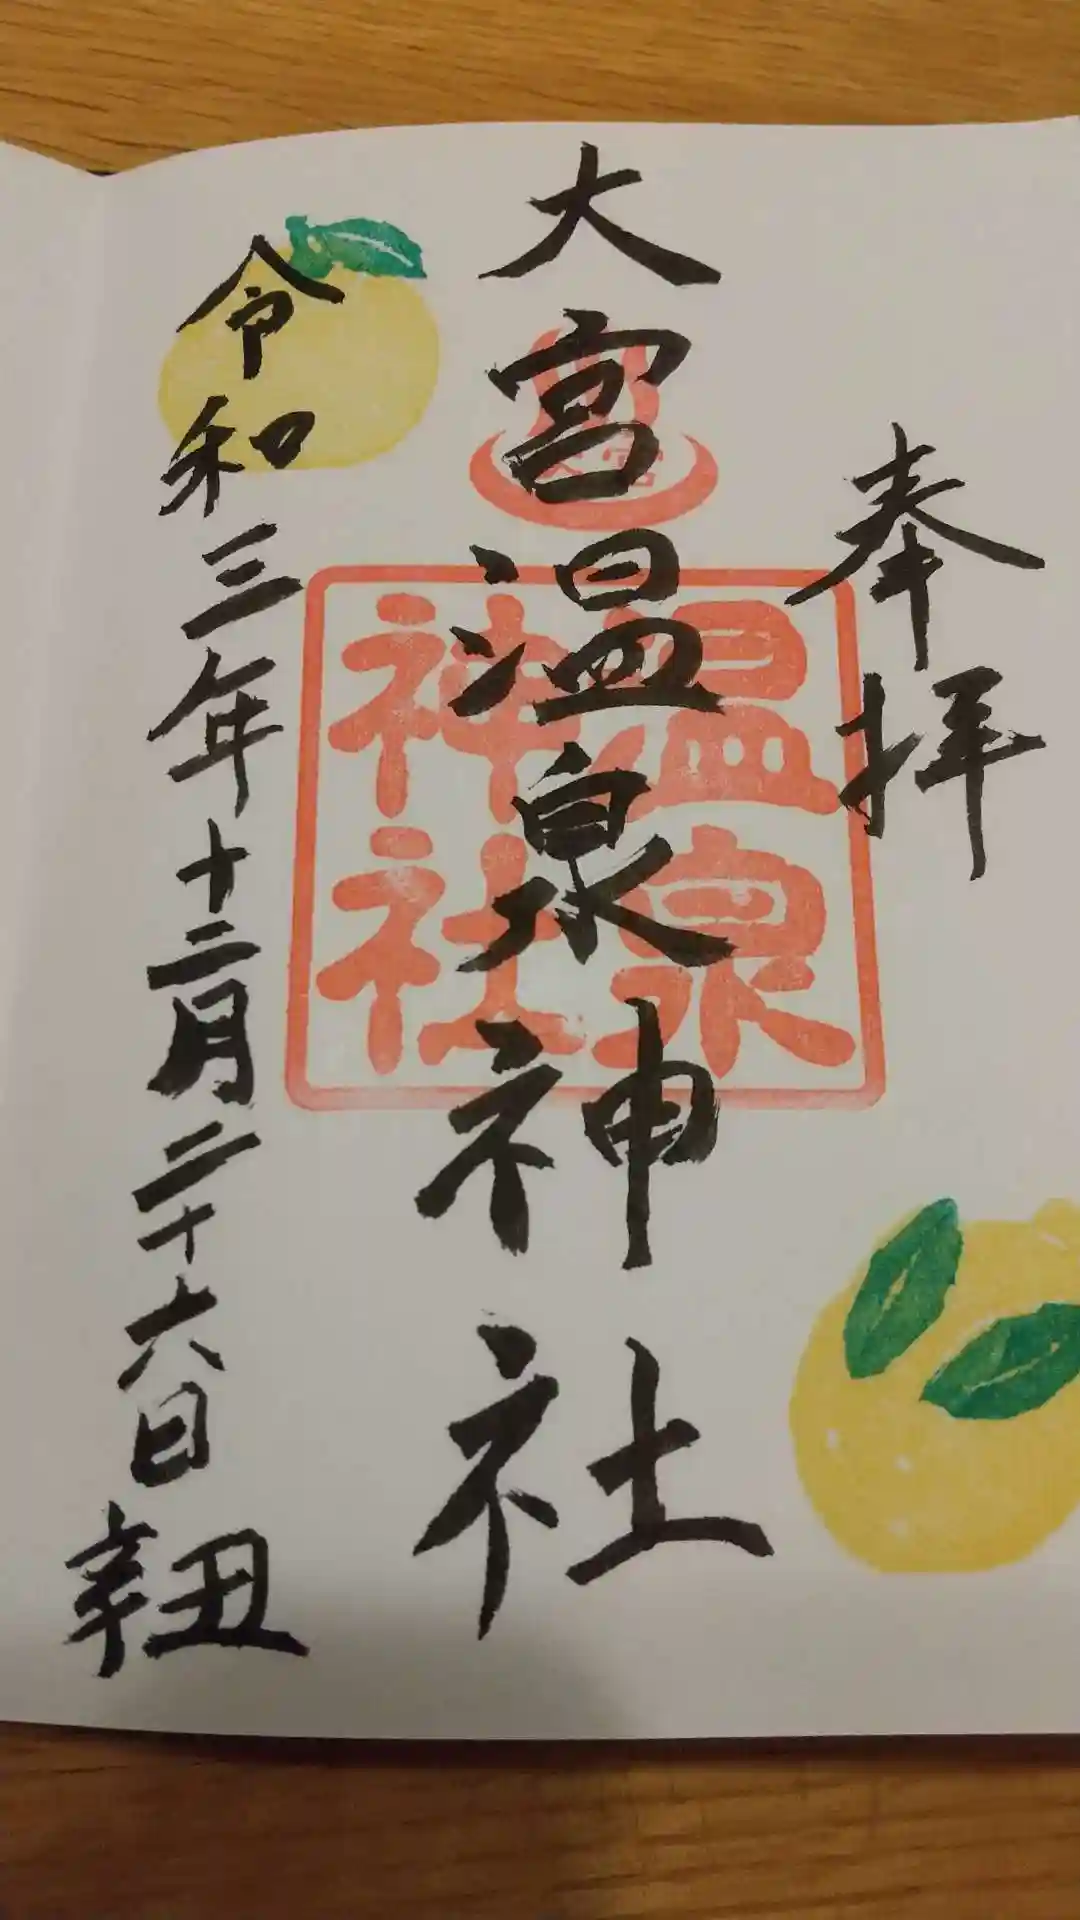 奉拝
大宮温泉神社
温泉
神社
大宮
令和三年十二月二十六日
辛丑